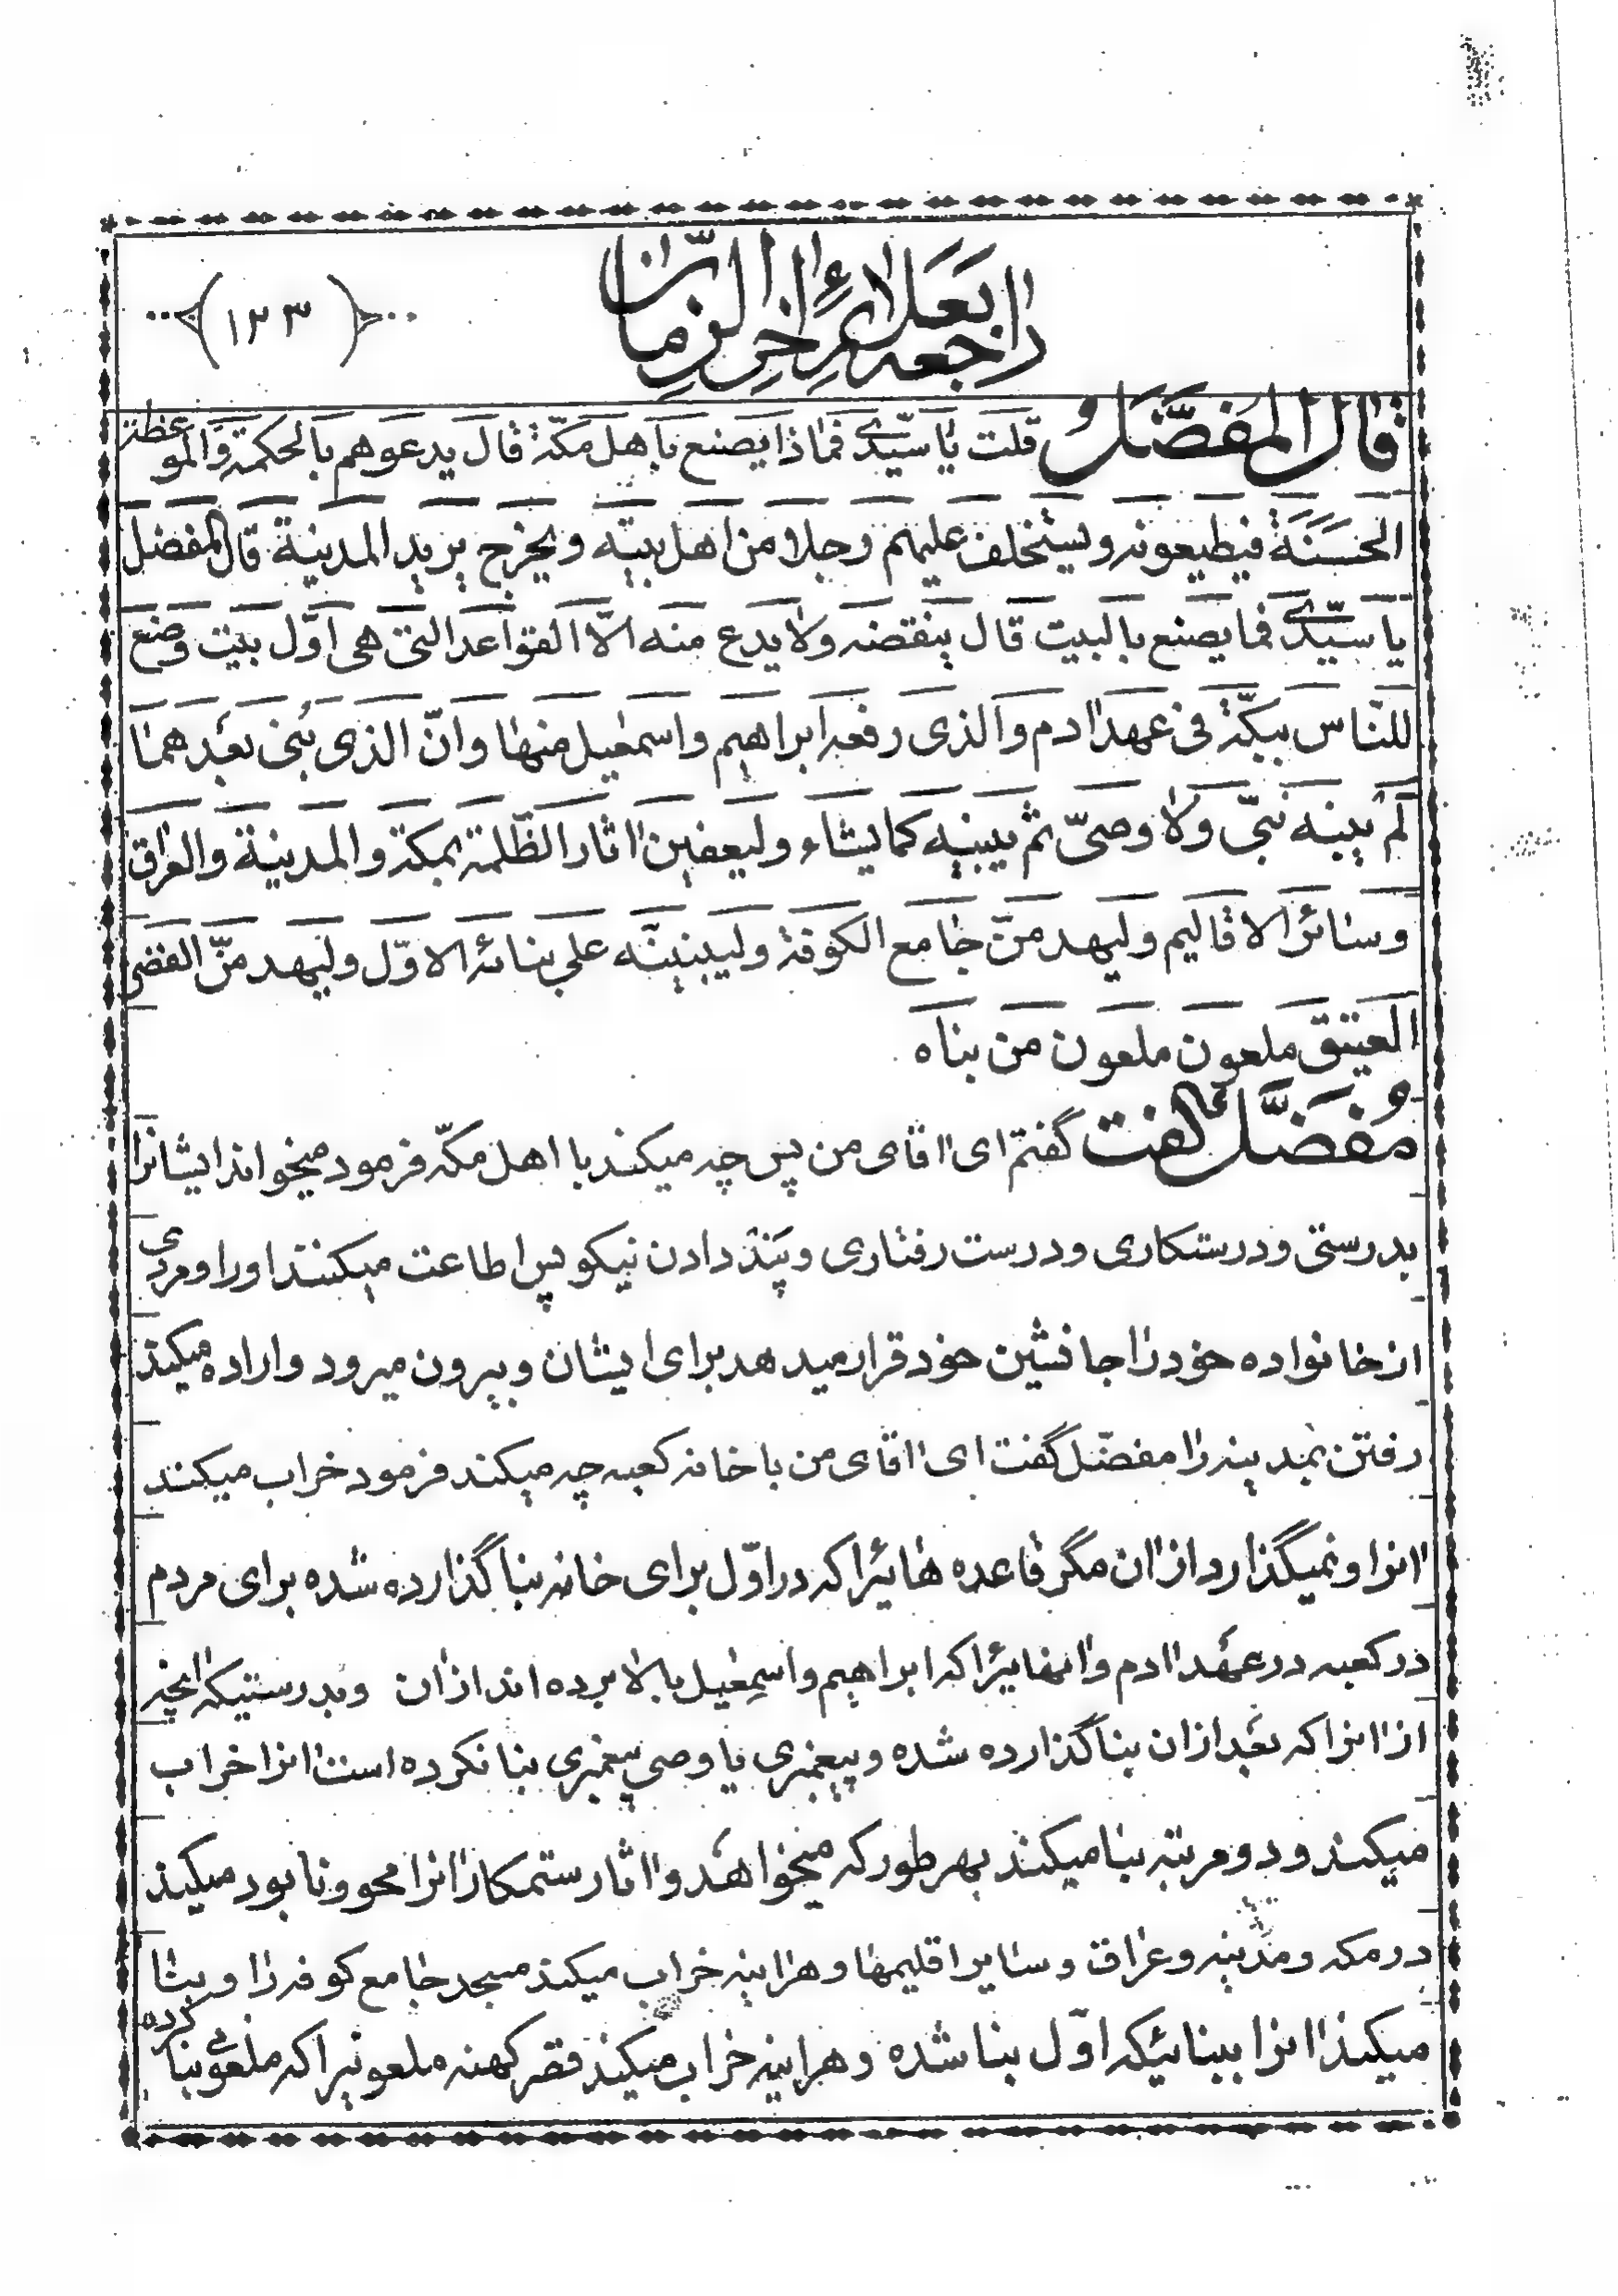 راجعه بعلائم اخر الزمان
(۱۲۳)
قال المفضل قلت یا سیّدی فماذا یصنع باهل مکّة قال یدعوهم بالحکمة والموعظة
الحسنة فیطیعونه ویستخلف علیهم رجلا من اهل بیته ویخرج یرید المدینة قال المفضل
یا سیّدی فما یصنع بالبیت قال ینقضه ولا یدع منه الّا القواعد التی هی اوّل بیت وضع
للنّاس ببکّة فی عهد ادم والذی رفعه ابراهیم واسمعیل منها وانّ الذی بُنی بعدهما
لم یبنه نبیّ ولا وصیّ ثم یبنیه کما یشاء ولیعفین اثار الظّلمة بمکة والمدینة والعراق
وسائر الاقالیم ولیهدمنّ جامع الکوفة ولیبنینّه علی بنائه الاوّل ولیهدمنّ القصر
العتیق ملعون ملعون من بناه
مُفضَّل گفت گفتم ای اقای من پس چه میکند با اهل مکّه فرمود میخواند ایشانرا
بدرستی ودرستکاری ودرست رفتاری وپند دادن نیکو پس اطاعت میکنند اورا ومردی
از خانواده خود را جانشین خود قرار میدهد برای ایشان وبیرون میرود واراده میکند
رفتن بمدینه را مفضّل گفت ای اقای من با خانه کعبه چه میکند فرمود خراب میکند
انرا ونمیگذارد از ان مگر قاعده هائیرا که در اوّل برای خانه بنا گذارده شده برای مردم
در کعبه در عهد ادم وانهائیرا که ابراهیم واسمعیل بالا برده اند از ان وبدرستیکه انچه
از انرا که بعد از ان بنا گذارده شده وپیغمبری یا وصی پیغمبری بنا نکرده است انرا خراب
میکند ودو مرتبه بنا میکند بهر طور که میخواهد واثار ستمکارانرا محو ونابود میکند
در مکه ومدینه وعراق وسایر اقلیمها وهراینه خراب میکند مسجد جامع کوفه را وبنا
میکند انرا ببنائیکه اوّل بنا شده وهراینه خراب میکند قصر کهنه ملعونیرا که ملعونی بنا کرده